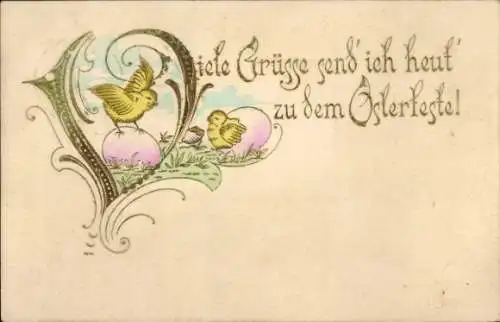 Viele Grüsse send' ich heut'
zu dem Osterfeste!